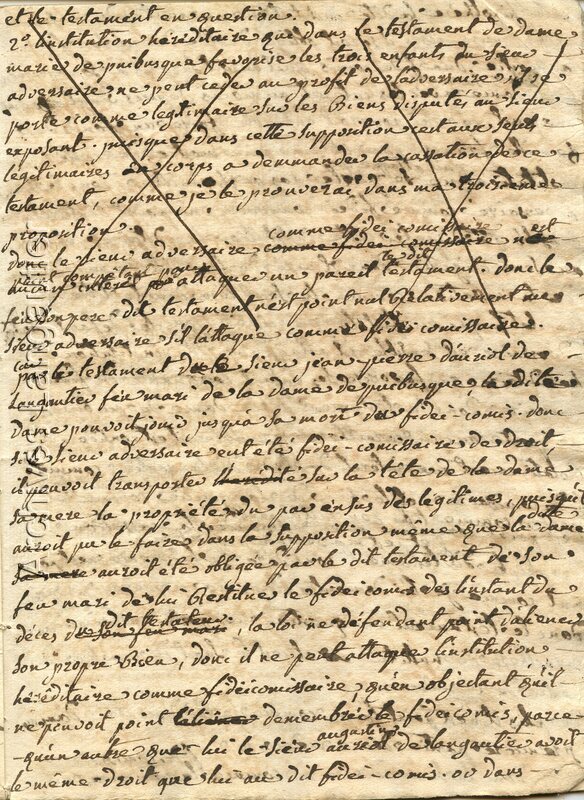 et le testament en question.
2º. linstitution héréditaire que dans le testament de dame
marie de puibusque favorise les trois enfants du sieur
adversaire ne peut ceder au profit de ladversaire s'il se
porte comme legitimaire sur les Biens disputés au sieur
exposant. puisque dans cette supposition cest aux seuls
legitimaires de corps a demmander la cassation de ce
testament, comme je le prouverai dans ma troisieme
proposition.
comme fidei comissaire est
donc le sieur adversaire comme fidei comissaire n'a
aucun interet pour attaquer un pareil testament. donc le
dit testament n'est point nul Relativement au
sieur adversaire s'il l'attaque comme fidei comissaire.
car
par le testament de le sieur jean pierre dauriol de
Langautier feu mari de la dame de puibusque, la dite
Dame pouvoit jouir jusqu'a sa mort du fidei-comis. donc
si le sieur adversaire eut été fidei-comissaire de droit
il pouvoit transporter sur la tête de la dame
sa mere la propriété du par ensus des légitimes, puisqu'il
auroit pu le faire dans la supposition même que la dite dame
sa mere auroit été obligée par le dit testament de son
feu mari de lui Restituer le fidei comis dès l'instant du
dit testateur
décès de son feu mari, la loi ne défendant point d'aliener
son propre Bien, donc il ne peut attaquer linstitution
héréditaire comme fidei comissaire qu'en objectant qu'il
ne pouvoit point demembrer le fidei comis, parce
augustin
qu'un autre que lui le sieur auriol de langautier avoit
le même droit que lui au dit fidei-comis. or dans